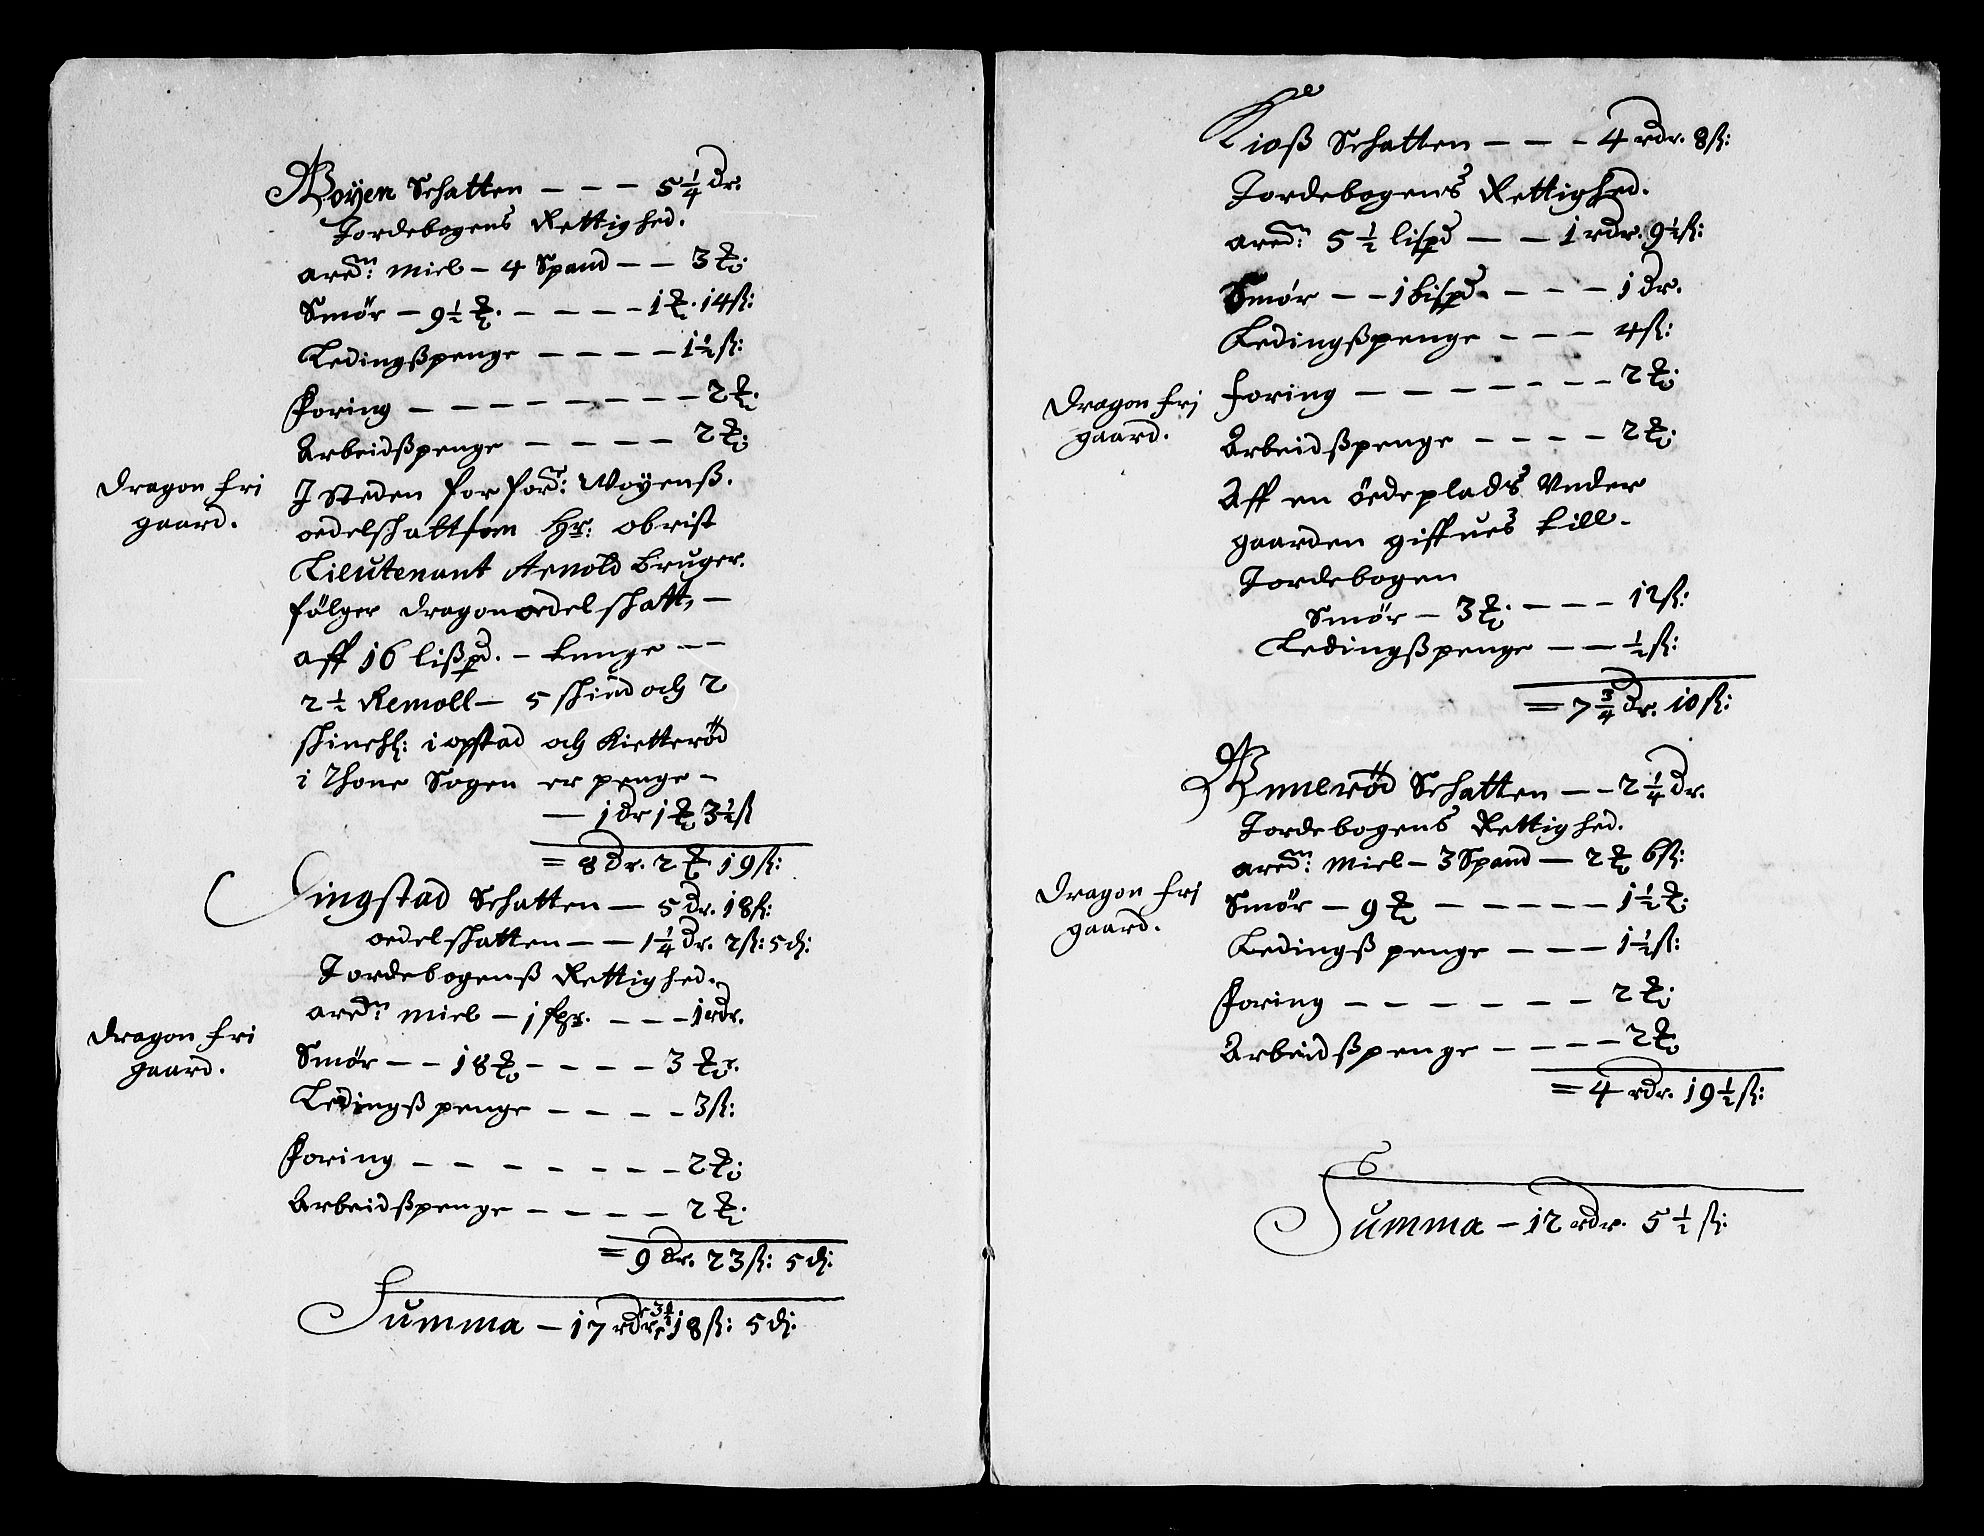 Woyen Schatten — — — 5 1/4 dr.
Jordebogens Rettighed.
aredm: miel — 4 Spand — — 3 ℔:
Smör — 9 1/2 ℔. — — — — 1 ℔. 14 ß:
Ledingßpenge — — — — 1 1/2 ß:
Foring — — — — — — — 2 ℔:
Arbeidßpenge — — — — 2 ℔:
Dragon fri
gaard.
J steden for ford: Woyenß.
oedelschatt som Hr: obrist
Lieutenant Arnold bruger.
fölger dragon oedelschatt, —
aff 16 lißpd. — tunge — —
2 1/2 Remoll — 5 skind och 2
i opstad och Kietteröd
i Thone Sogen er penge —
— 1 dr 1 ℔ 3 1/2 ß
= 8 dr. 2 ℔ 19 ß:
Gingstad Schatten — 5 dr. 18 ß:
oedelschatten — — 1 1/4 dr. 2 ß: 5 d:
Jordebogenß Rettighed.
Dragon fri
gaard.
aredm: miel — 1 — — — 1 rdr.
Smör — — 18 ℔ — — — — 3 ℔.
Ledingß penge — — — — 3 ß:
Foring — — — — — — — 2 ℔:
Arbeidßpenge — — — — 2 ℔:
= 9 dr. 23 ß: 5 d:
Summa — 17 rdr. 18 ß: 5 d:
Kioß Schatten — — — 4 rdr. 8 ß:
Jordebogens Rettighed.
aredm: 5 1/2 lispd — — 1 rdr. 9 1/2 ß:
Smör — — 1 bispd. — — — 1 dr.
Ledingßpenge — — — 4 ß:
Dragon fri
gaard.
foring — — — — — — — 2 ℔:
Arbeidßpenge — — — — 2 ℔:
Aff en ödeplads Vnder
gaarden giffues till.
Jordebogen
Smör — 3 ℔. — — — 12 ß:
Ledingßpenge — — 1/2 ß:
= 7 3/4 dr. 10 ß:
Wnneröd Schatten — — 2 1/4 dr.
Jordebogens Rettighed.
aredm: miel — 3 Spand — 2 ℔ 6 ß:
Dragon fri
gaard.
Smör — 9 ℔ — — — — — 1 1/2 ℔:
Ledingß penge — — — 1 1/2 ß:
Foring — — — — — — 2 ℔:
Arbeidßpenge — — — — 2 ℔
= 4 rdr. 19 1/2 ß:
Summa — 12 rdr. 5 1/2 ß: